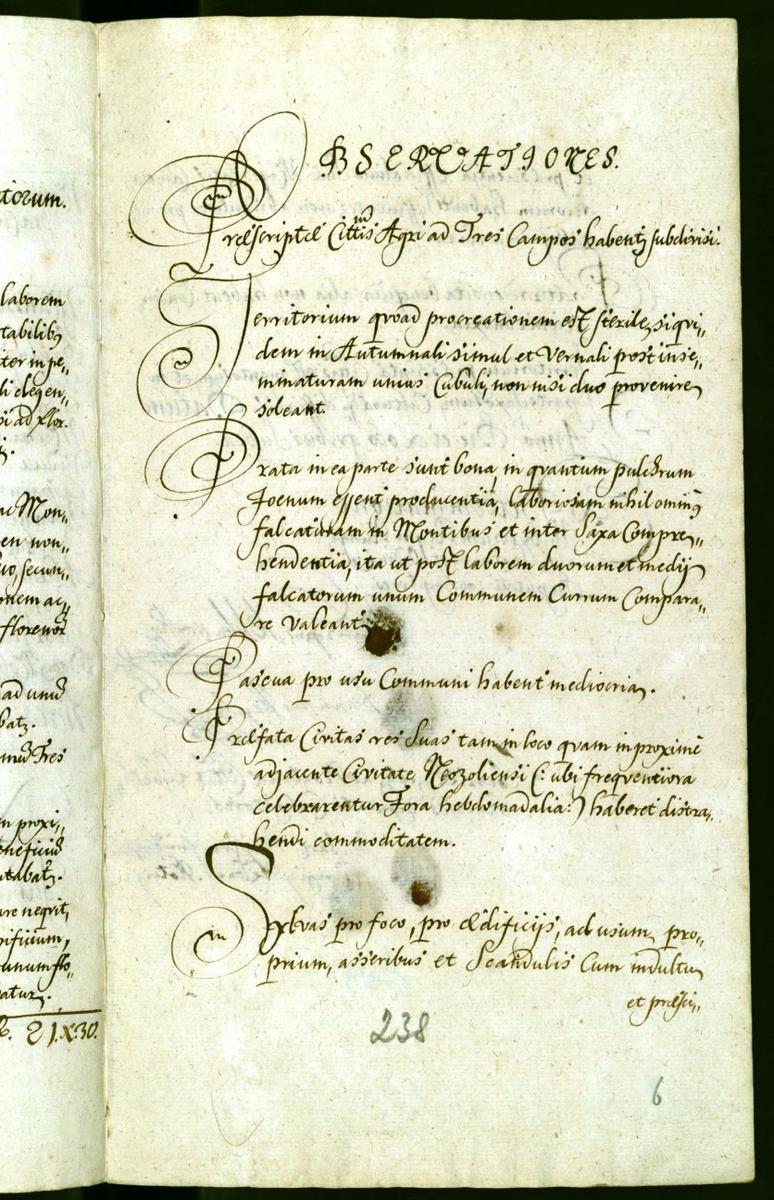 torum.
laborem
tabilibꝫ
iter in pe„
li degen„
si ad flor.
ac Mon„
en non„
uo, secun„
onem ac„
florenor
ad unū
batʒ.
Tres
m proxi„
eneficiū
utabatʒ.
are neqvit,
pificium,
unum flo„
atur.
21.x.30.
OBSERVATIONES.
Præscriptæ Cittis Agri ad Tres Campos habentʒ subdivisi.
Territorium qvoad procreationem est sterile, siqvi„
dem in Autumnali simul et Vernali post inse„
minaturam unius Cubuli, non nisi duo provenire
soleant.
Prata in ea parte sunt bona, in qvantum pulchrum
foenum essent producentia, laboriosam nihilominꝰ
falcaturam in Montibus et inter Saxa Compre„
hendentia, ita ut post laborem duorum et medij
falcatorum unum Communem Currum Compara„
re valeant.
Pascua pro usu Communi habent mediocria.
Præfata Civitas res suas tam in loco qvam in proximē
adjacente Civitate Neozoliensi (: ubi freqventiora
celebrarentur Fora hebdomadalia :) haberet distra„
hendi commoditatem.
Sylvas pro foco, pro ædificijs, ad usum pro„
prium, asseribus et Scandulis Cum indultu
et præsci„
238
6